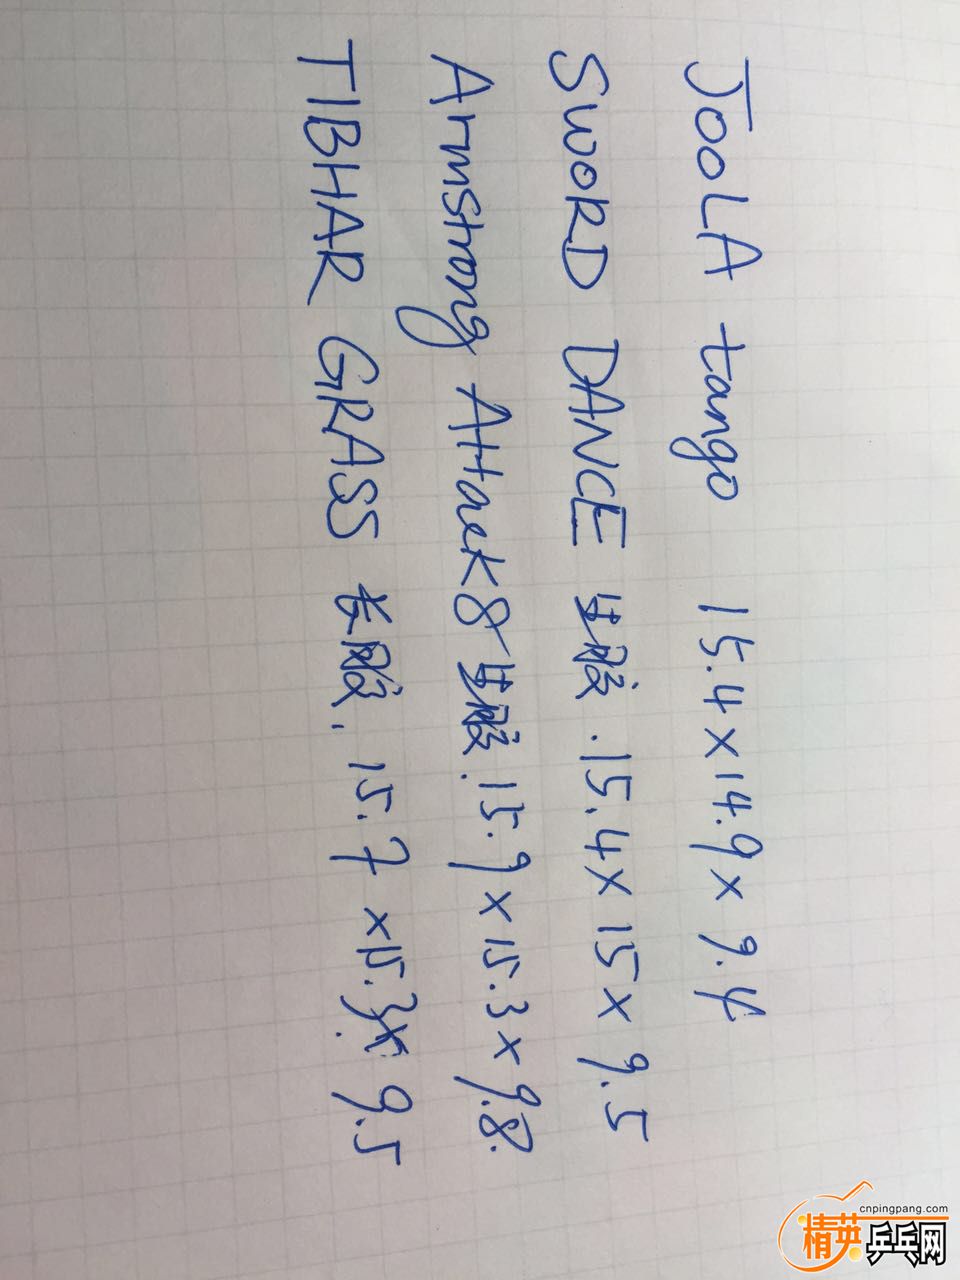 JOOLA tango 15.4×14.9×9.4
SWORD DANCE 生胶.15.4×15×9.5
Armstrong Attack8生胶.15.9×15.3×9.8.
TIBHAR GRASS 长胶.15.7×15.3×9.5
cnpingpang.com
精英乒乓网